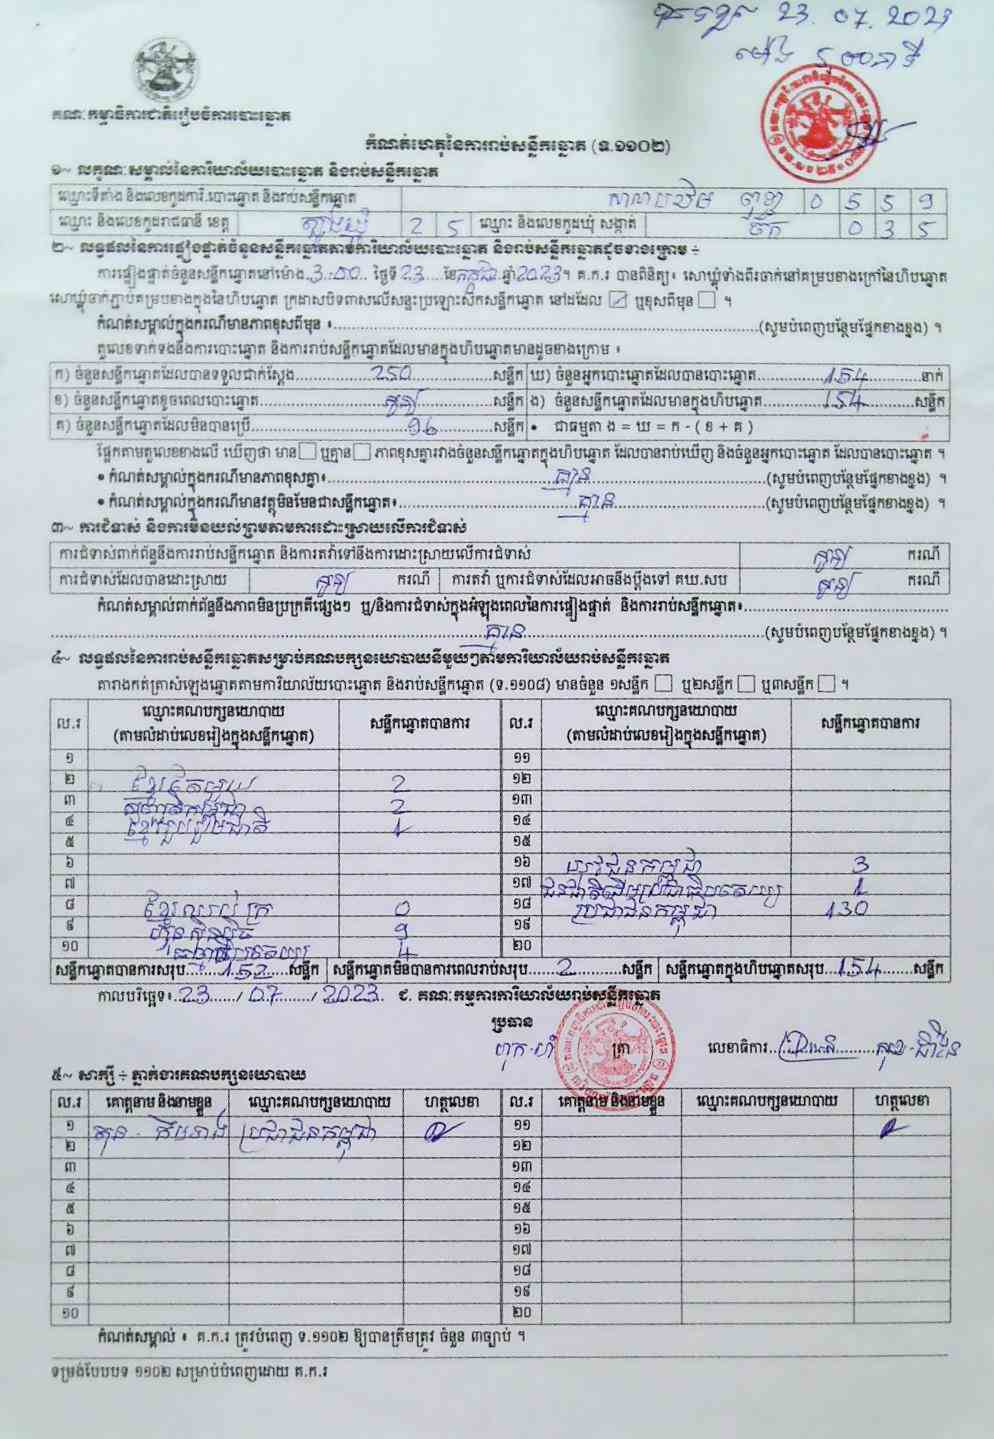 23.07.2023
គណៈកម្មាធិការជាតិរៀបចំការបោះឆ្នោត
កំណត់ហេតុនៃការរាប់សន្លឹកឆ្នោត (ទ.១១០២)
១~ លក្ខណៈសម្គាល់នៃការិយាល័យបោះឆ្នោត និងរាប់សន្លឹកឆ្នោត
ឈ្មោះទីតាំង និងលេខកូដការិ.បោះឆ្នោត និងរាប់សន្លឹកឆ្នោត 0 5 5 9
ឈ្មោះ និងលេខកូដរាជធានី ខេត្ត ត្បូងឃ្មុំ 2 5 ឈ្មោះ និងលេខកូដឃុំ សង្កាត់ ចក 0 3 5
២~ លទ្ធផលនៃការផ្ទៀងផ្ទាត់ចំនួនសន្លឹកឆ្នោតតាមការិយាល័យបោះឆ្នោត និងរាប់សន្លឹកឆ្នោតដូចខាងក្រោម ÷
ការផ្ទៀងផ្ទាត់ចំនួនសន្លឹកឆ្នោតនៅម៉ោង 3:00 ថ្ងៃទី 23 ខែ កក្កដា ឆ្នាំ 2023 ។ គ.ក.រ បានពិនិត្យ៖ សោឃ្លុំទាំងពីរចាក់នៅគម្របខាងក្រៅនៃហិបឆ្នោត
សោឃ្លុំចាក់ភ្ជាប់គម្របខាងក្នុងនៃហិបឆ្នោត ក្រដាសបិទពាសលើសន្ទះប្រឡោះសឹកសន្លឹកឆ្នោត នៅដដែល ☑ ឬខុសពីមុន ☐ ។
កំណត់សម្គាល់ក្នុងករណីមានភាពខុសពីមុន ៖ (សូមបំពេញបន្ថែមផ្នែកខាងខ្នង) ។
តួលេខទាក់ទងនឹងការបោះឆ្នោត និងការរាប់សន្លឹកឆ្នោតដែលមានក្នុងហិបឆ្នោតមានដូចខាងក្រោម ៖
ក) ចំនួនសន្លឹកឆ្នោតដែលបានទទួលជាក់ស្តែង 250 សន្លឹក ឃ) ចំនួនអ្នកបោះឆ្នោតដែលបានបោះឆ្នោត 154 នាក់
ខ) ចំនួនសន្លឹកឆ្នោតខូចពេលបោះឆ្នោត សូន្យ សន្លឹក ង) ចំនួនសន្លឹកឆ្នោតដែលមានក្នុងហិបឆ្នោត 154 សន្លឹក
គ) ចំនួនសន្លឹកឆ្នោតដែលមិនបានប្រើ 96 សន្លឹក • ជាធម្មតា ង = ឃ = ក - ( ខ + គ )
ផ្អែកតាមតួលេខខាងលើ ឃើញថា មាន ☐ ឬគ្មាន ☐ ភាពខុសគ្នារវាងចំនួនសន្លឹកឆ្នោតក្នុងហិបឆ្នោត ដែលបានរាប់ឃើញ និងចំនួនអ្នកបោះឆ្នោត ដែលបានបោះឆ្នោត ។
• កំណត់សម្គាល់ក្នុងករណីមានភាពខុសគ្នា៖ គ្មាន (សូមបំពេញបន្ថែមផ្នែកខាងខ្នង) ។
• កំណត់សម្គាល់ក្នុងករណីមានវត្ថុមិនមែនជាសន្លឹកឆ្នោត៖ គ្មាន (សូមបំពេញបន្ថែមផ្នែកខាងខ្នង) ។
៣~ ការជំទាស់ និងការមិនយល់ព្រមតាមការដោះស្រាយលើការជំទាស់
ការជំទាស់ពាក់ព័ន្ធនឹងការរាប់សន្លឹកឆ្នោត និងការតវ៉ាទៅនឹងការដោះស្រាយលើការជំទាស់ សូន្យ ករណី
ការជំទាស់ដែលបានដោះស្រាយ សូន្យ ករណី ការតវ៉ា ឬការជំទាស់ដែលអាចនឹងប្តឹងទៅ គឃ.សប សូន្យ ករណី
កំណត់សម្គាល់ពាក់ព័ន្ធនឹងភាពមិនប្រក្រតីផ្សេងៗ ឬ/និងការជំទាស់ក្នុងអំឡុងពេលនៃការផ្ទៀងផ្ទាត់ និងការរាប់សន្លឹកឆ្នោត៖
គ្មាន (សូមបំពេញបន្ថែមផ្នែកខាងខ្នង) ។
៤~ លទ្ធផលនៃការរាប់សន្លឹកឆ្នោតសម្រាប់គណបក្សនយោបាយនីមួយៗតាមការិយាល័យរាប់សន្លឹកឆ្នោត
តារាងកត់ត្រាសំឡេងឆ្នោតតាមការិយាល័យបោះឆ្នោត និងរាប់សន្លឹកឆ្នោត (ទ.១១០៨) មានចំនួន ១សន្លឹក ☐ ឬ២សន្លឹក ☐ ឬ៣សន្លឹក ☐ ។
ល.រ ឈ្មោះគណបក្សនយោបាយ (តាមលំដាប់លេខរៀងក្នុងសន្លឹកឆ្នោត) សន្លឹកឆ្នោតបានការ ល.រ ឈ្មោះគណបក្សនយោបាយ (តាមលំដាប់លេខរៀងក្នុងសន្លឹកឆ្នោត) សន្លឹកឆ្នោតបានការ
១ ១១
២ ខ្មែរតែមួយ 2 ១២
៣ 2 ១៣
៤ ខ្មែររួបរួមជាតិ 1 ១៤
៥ ១៥
៦ ១៦ កម្ពុជា 3
៧ ១៧ 1
៨ ខ្មែរឈប់ក្រ 0 ១៨ ប្រជាជនកម្ពុជា 130
៩ ហ៊្វុនស៊ិនប៉ិច 9 ១៩
១០ 4 ២០
សន្លឹកឆ្នោតបានការសរុប 152 សន្លឹក សន្លឹកឆ្នោតមិនបានការពេលរាប់សរុប 2 សន្លឹក សន្លឹកឆ្នោតក្នុងហិបឆ្នោតសរុប 154 សន្លឹក
កាលបរិច្ឆេទ៖ 23 / 07 / 2023 ជ. គណៈកម្មការការិយាល័យរាប់សន្លឹកឆ្នោត
ប្រធាន
ត្រា លេខាធិការ
៥~ សាក្សី ÷ ភ្នាក់ងារគណបក្សនយោបាយ
ល.រ គោត្តនាម និងនាមខ្លួន ឈ្មោះគណបក្សនយោបាយ ហត្ថលេខា ល.រ គោត្តនាម និងនាមខ្លួន ឈ្មោះគណបក្សនយោបាយ ហត្ថលេខា
១ ប្រជាជនកម្ពុជា ១១
២ ១២
៣ ១៣
៤ ១៤
៥ ១៥
៦ ១៦
៧ ១៧
៨ ១៨
៩ ១៩
១០ ២០
កំណត់សម្គាល់ ៖ គ.ក.រ ត្រូវបំពេញ ទ.១១០២ ឱ្យបានត្រឹមត្រូវ ចំនួន ៣ច្បាប់ ។
ទម្រង់បែបបទ ១១០២ សម្រាប់បំពេញដោយ គ.ក.រ